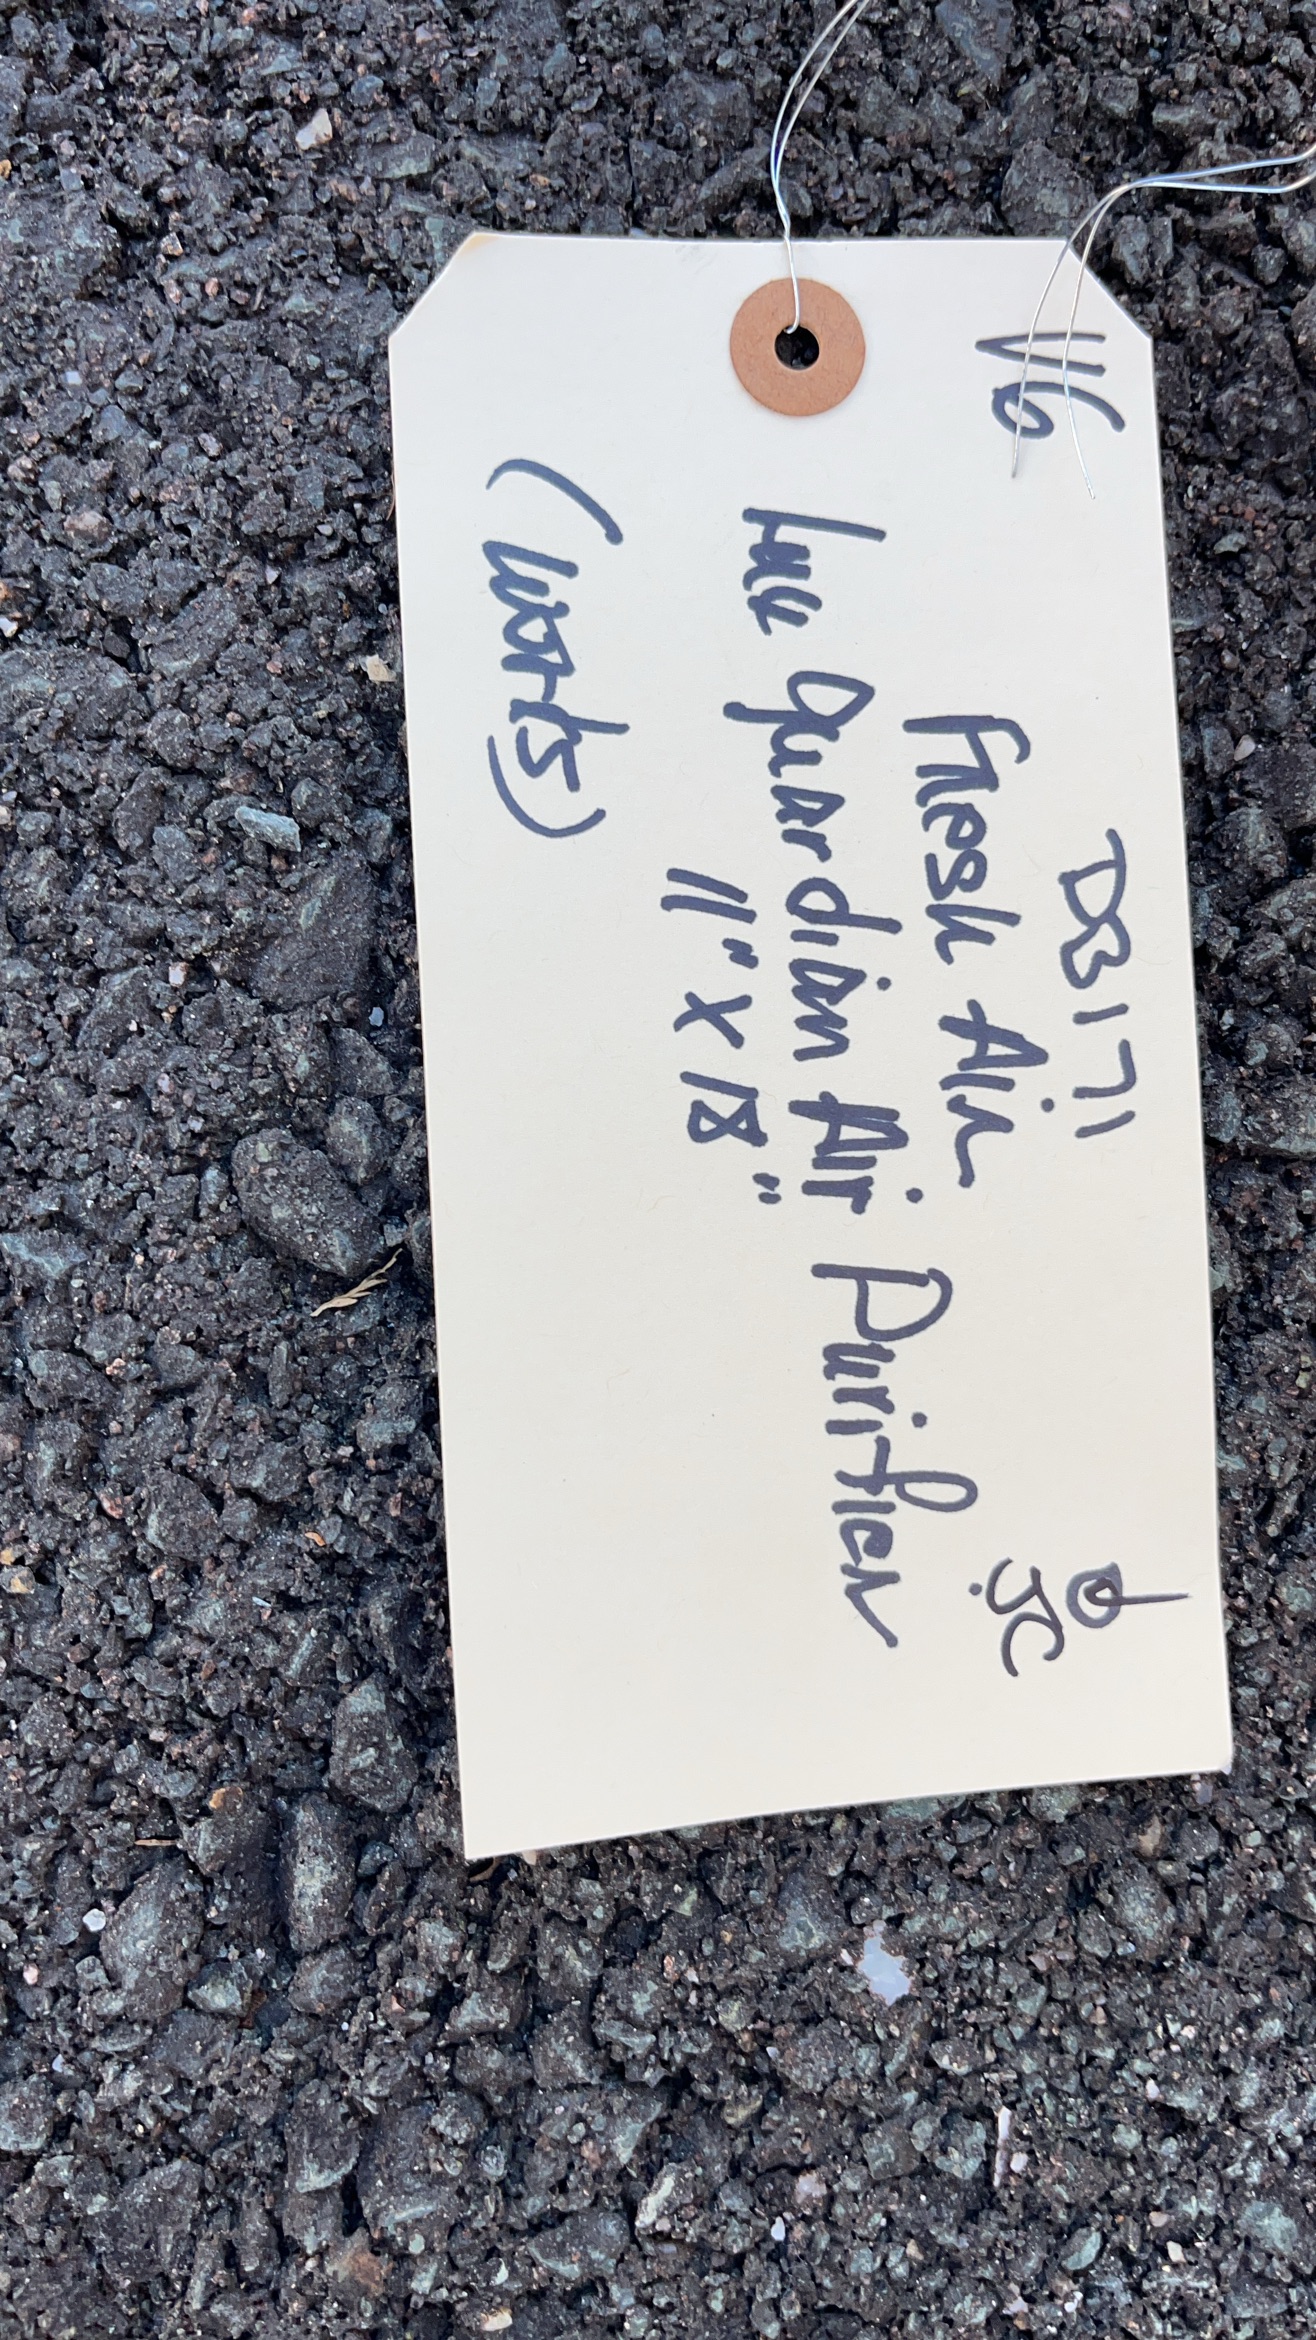 V6
DB171
JC
Fresh Air
Guardian Air Purifier
11" x 18"
(works)